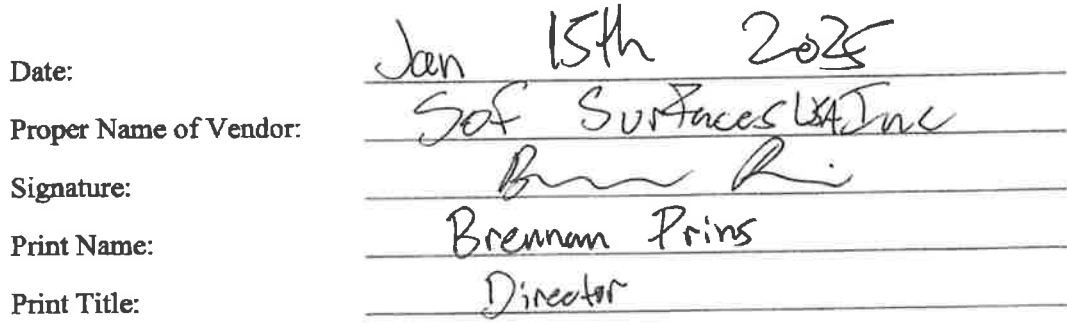 Date: Jan 15th 2025
Proper Name of Vendor: Sof Surfaces USA Inc
Signature:
Print Name: Brennan Prins
Print Title: Director